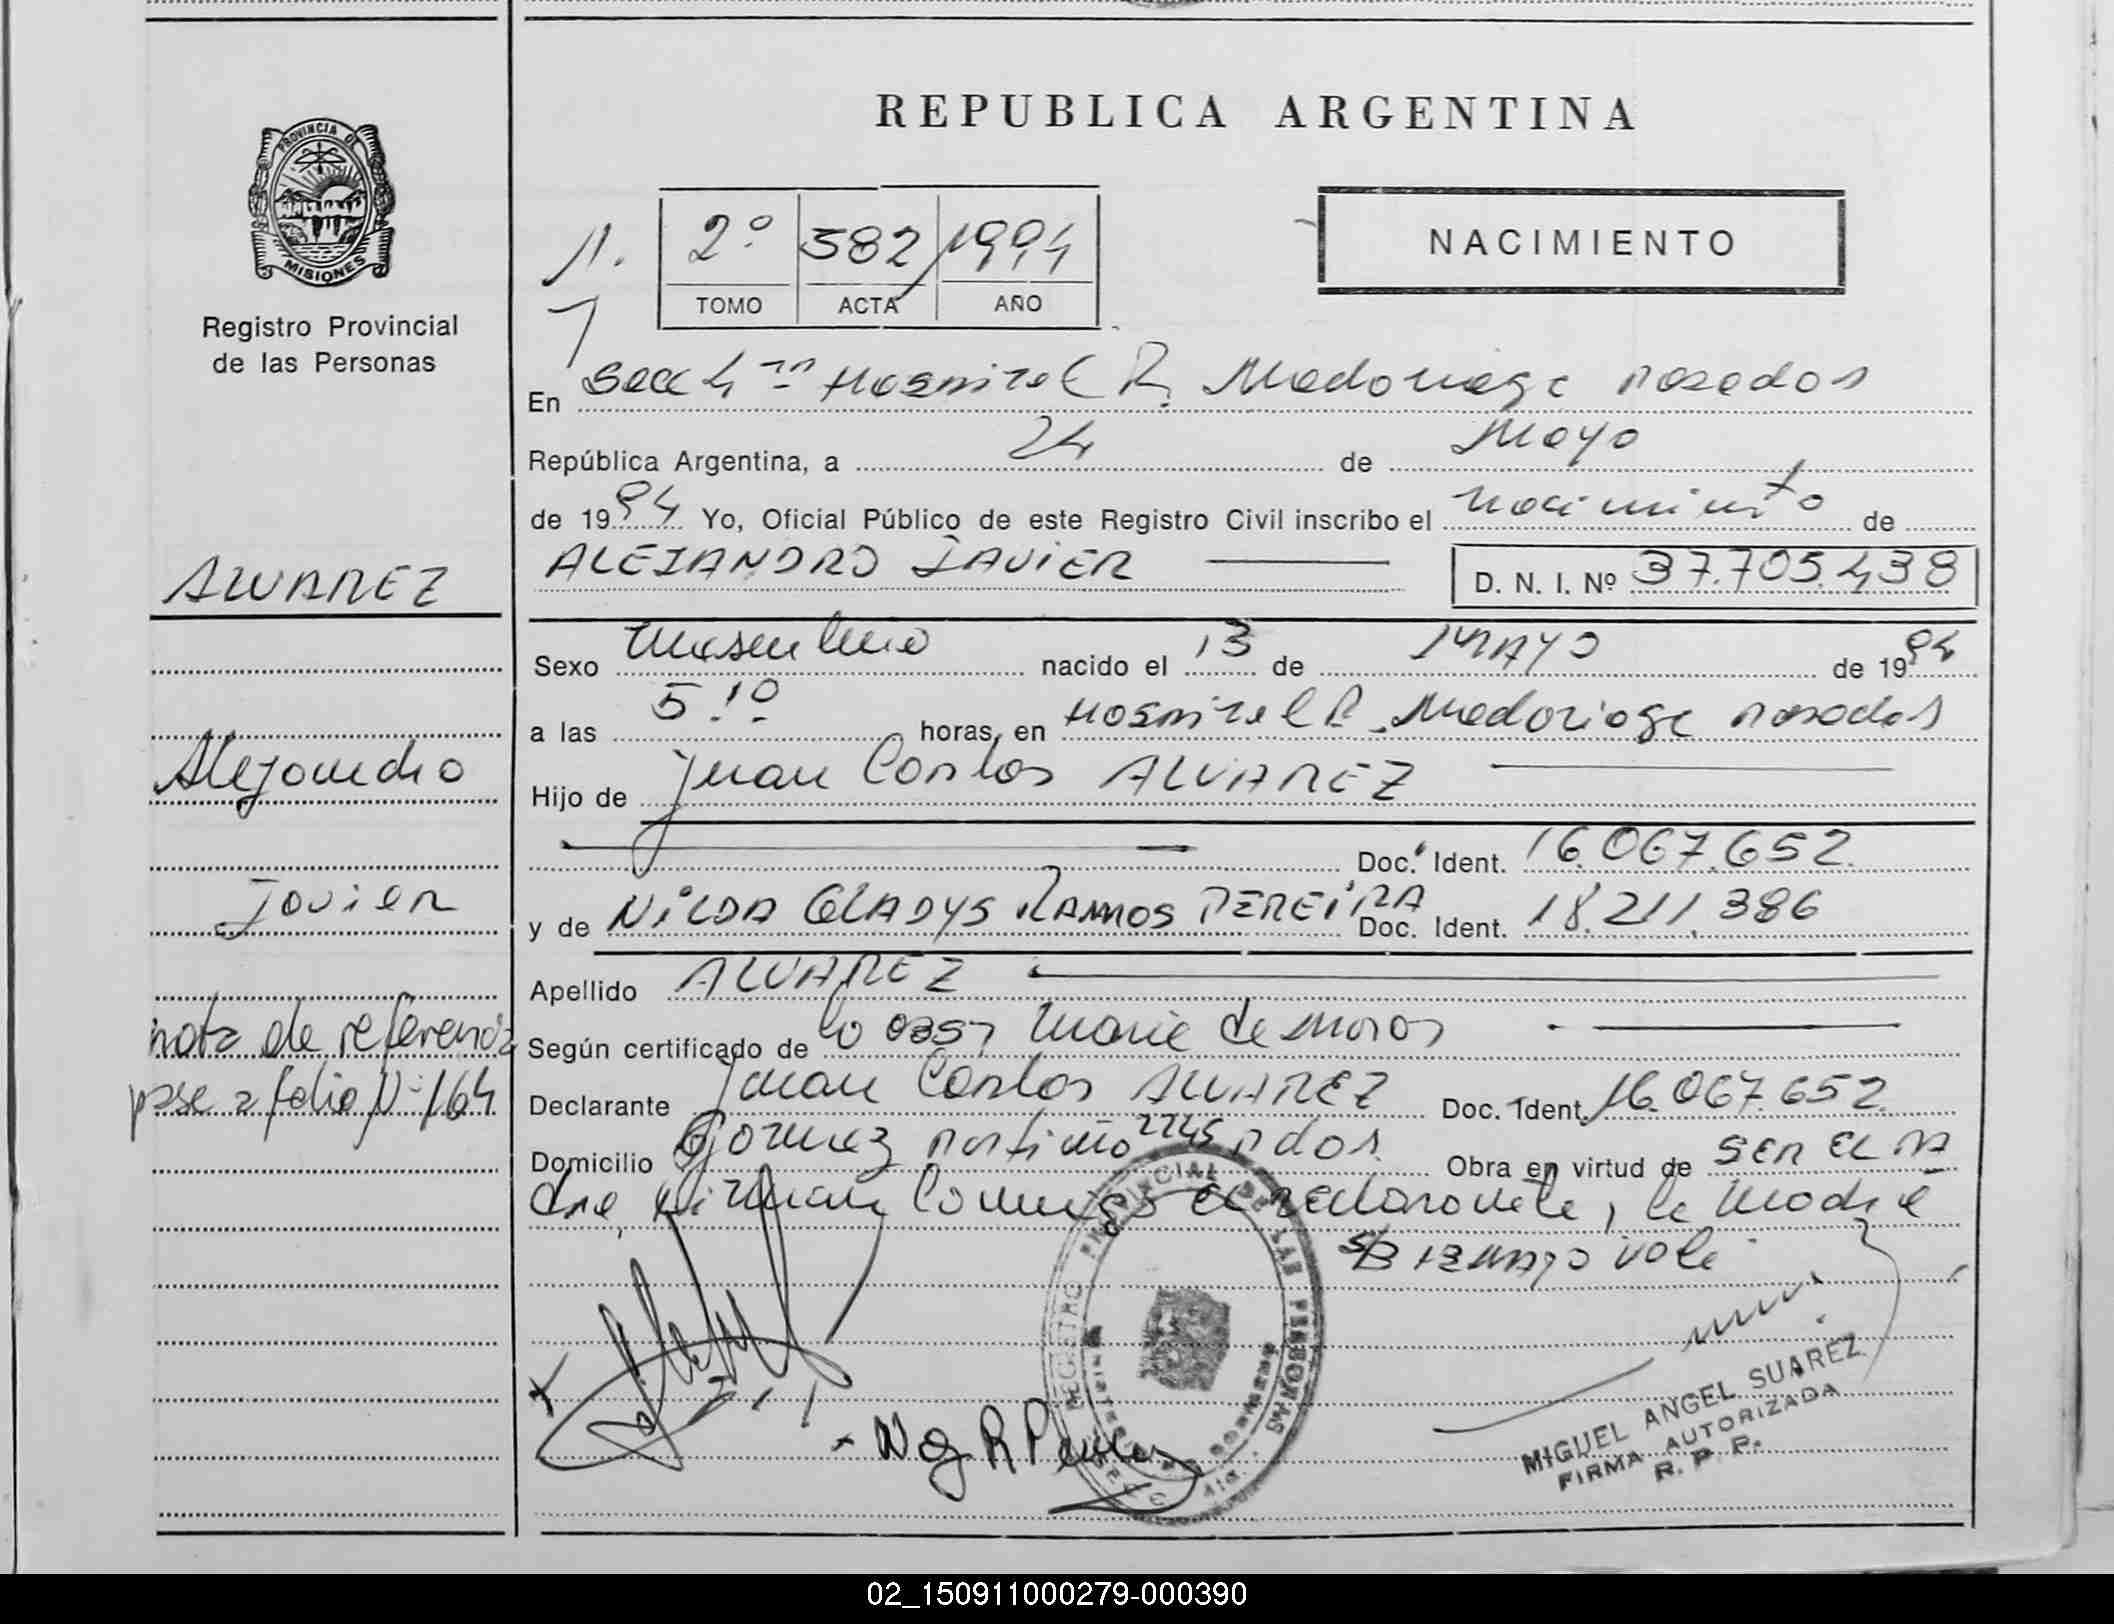 PROVINCIA DE
MISIONES
Registro Provincial
de las Personas
ALVAREZ
Alejandro
Javier
nota de referencia
pase a folio Nº 164
REPUBLICA ARGENTINA
2º 582 1994
TOMO ACTA AÑO
NACIMIENTO
En Secc 4ta Hospital R. Madariaga Posadas
República Argentina, a 24 de Mayo
de 1994 Yo, Oficial Público de este Registro Civil inscribo el nacimiento de
ALEJANDRO JAVIER D. N. I. Nº 37.705.438
Sexo Masculino nacido el 13 de MAYO de 1994
a las 5.10 horas, en Hospital R. Madariaga Posadas
Hijo de Juan Carlos ALVAREZ
Doc. Ident. 16.067.652
y de NILDA GLADYS RAMOS PEREIRA Doc. Ident. 18.211.386
Apellido ALVAREZ
Según certificado de Maria de
Declarante Juan Carlos ALVAREZ Doc. Ident. 16.067.652
Domicilio Gomez Portiño 2245 Pdas. Obra en virtud de SER EL PA
dre, Firman Conmigo el declarante, la Madre
S/B 13 MAYO Vale
REGISTRO PROVINCIAL DE LAS PERSONAS
MIGUEL ANGEL SUAREZ
FIRMA AUTORIZADA
R. P. P.
02_150911000279-000390